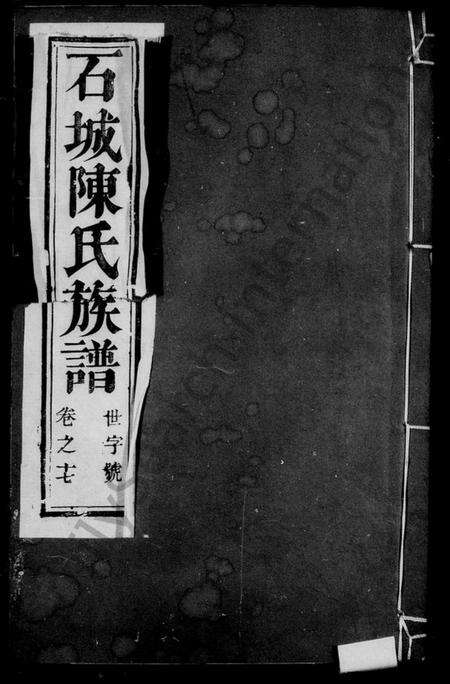 石城陳氏族譜
世字號
卷之十七